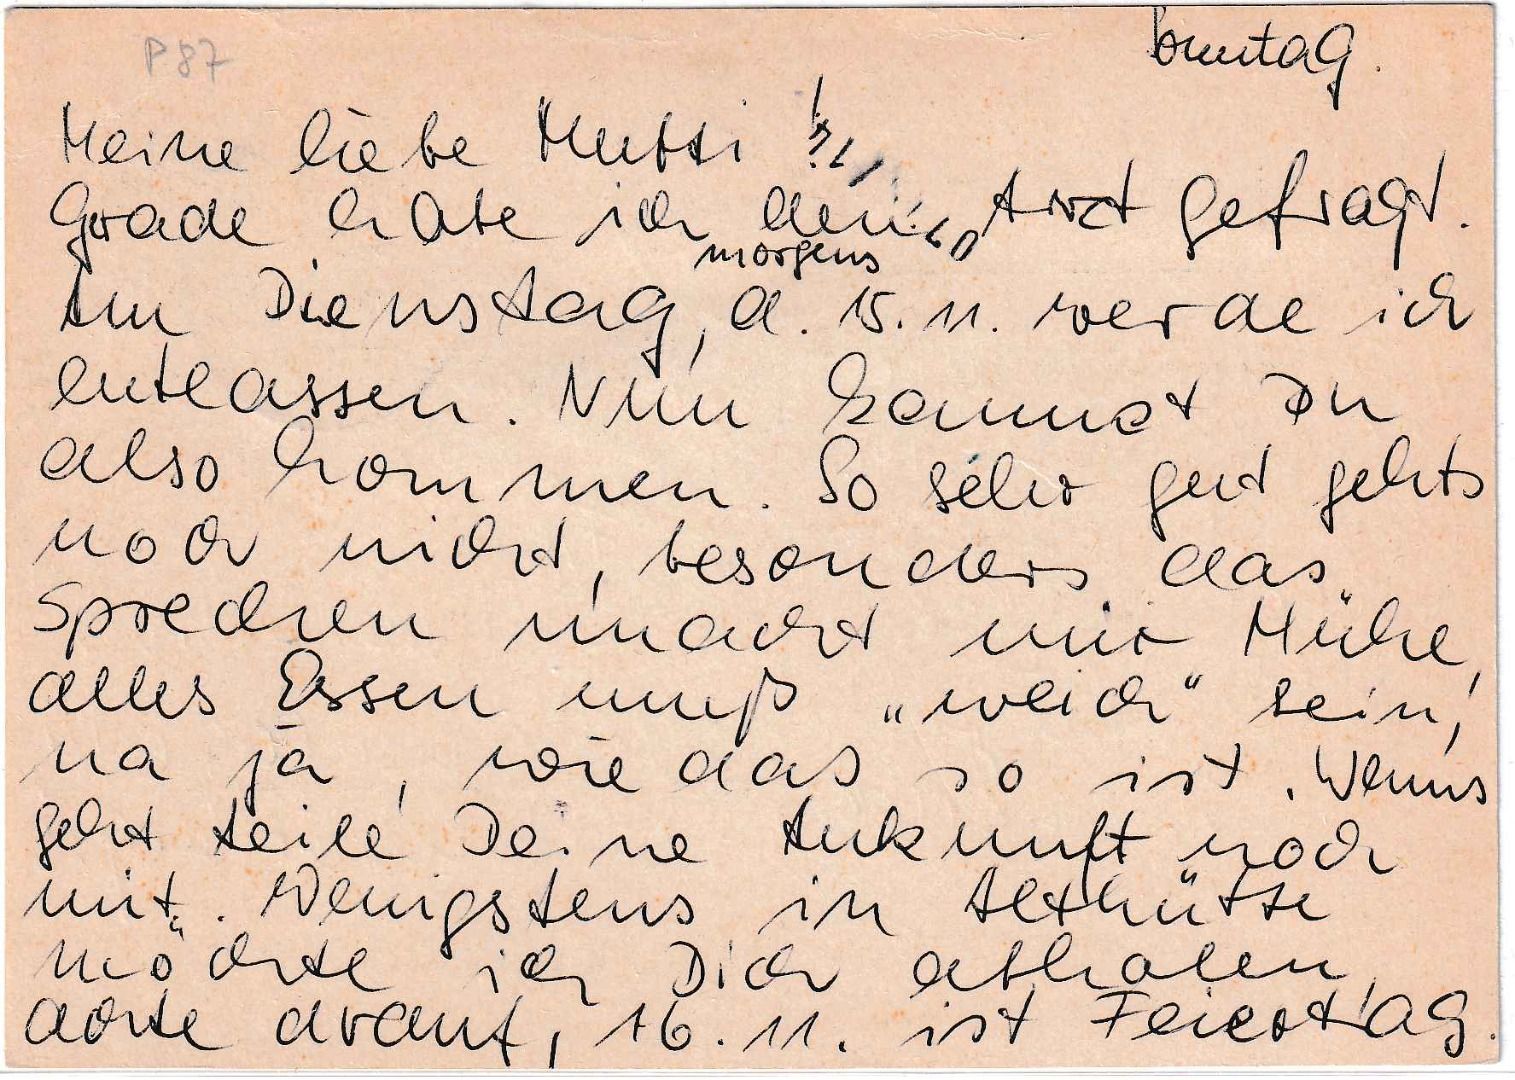 P 87
Sonntag.
Meine liebe Mutti!
Grade habe ich den Arzt gefragt.
morgens
Am Dienstag, d. 15. 11. werde ich
entlassen. Nun kannst Du
also kommen. So sehr gut gehts
noch nicht, besonders das
Sprechen macht mir Mühe,
alles Essen muß „weich“ sein,
na ja, wie das so ist. Wenns
geht teile Deine Ankunft noch
mit. Wenigstens in Althütte
möchte ich Dich abholen,
achte drauf, 16. 11. ist Feiertag.